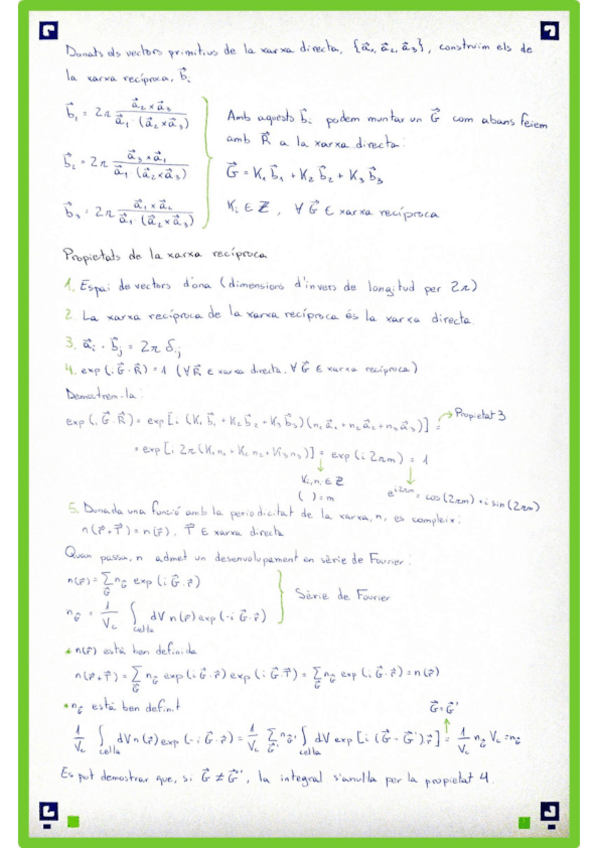 Donats els vectors primitius de la xarxa directa, {a⃗₁, a⃗₂, a⃗₃}, construïm els de
la xarxa recíproca, b⃗ᵢ
b⃗₁ = 2π (a⃗₂ × a⃗₃) / (a⃗₁ · (a⃗₂ × a⃗₃))
b⃗₂ = 2π (a⃗₃ × a⃗₁) / (a⃗₁ · (a⃗₂ × a⃗₃))
b⃗₃ = 2π (a⃗₁ × a⃗₂) / (a⃗₁ · (a⃗₂ × a⃗₃))
Amb aquests b⃗ᵢ podem muntar un G⃗ com abans feiem
amb R⃗ a la xarxa directa:
G⃗ = K₁ b⃗₁ + K₂ b⃗₂ + K₃ b⃗₃
Kᵢ ∈ ℤ, ∀ G⃗ ∈ xarxa recíproca
Propietats de la xarxa recíproca
1. Espai de vectors d'ona (dimensions d'invers de longitud per 2π)
2. La xarxa recíproca de la xarxa recíproca és la xarxa directa
3. a⃗ᵢ · b⃗ⱼ = 2π δᵢⱼ
4. exp(i G⃗·R⃗) = 1 (∀R⃗ ∈ xarxa directa, ∀ G⃗ ∈ xarxa recíproca)
Demostrem-la:
exp(i G⃗·R⃗) = exp[i (K₁ b⃗₁ + K₂ b⃗₂ + K₃ b⃗₃)(n₁ a⃗₁ + n₂ a⃗₂ + n₃ a⃗₃)] = → Propietat 3
= exp[i 2π (K₁n₁ + K₂n₂ + K₃n₃)] = exp(i 2πm) = 1
Kᵢ, nᵢ ∈ ℤ
( ) = m
e^{i2πm} = cos(2πm) + i sin(2πm)
5. Donada una funció amb la periodicitat de la xarxa, n, es compleix:
n(r⃗ + T⃗) = n(r⃗), T⃗ ∈ xarxa directa
Quan passa, n admet un desenvolupament en sèrie de Fourier:
n(r⃗) = Σ_G⃗ n_G⃗ exp(i G⃗·r⃗)
n_G⃗ = 1/V_c ∫_cella dV n(r⃗) exp(-i G⃗·r⃗)
Sèrie de Fourier
* n(r⃗) està ben definida
n(r⃗ + T⃗) = Σ_G⃗ n_G⃗ exp(i G⃗·r⃗) exp(i G⃗·T⃗) = Σ_G⃗ n_G⃗ exp(i G⃗·r⃗) = n(r⃗)
* n_G⃗ està ben definit
G⃗ = G⃗'
1/V_c ∫_cella dV n(r⃗) exp(-i G⃗·r⃗) = 1/V_c Σ_G⃗' n_G⃗' ∫_cella dV exp[i (G⃗ - G⃗')·r⃗] = 1/V_c n_G⃗ V_c = n_G⃗
Es pot demostrar que, si G⃗ ≠ G⃗', la integral s'anul·la per la propietat 4.